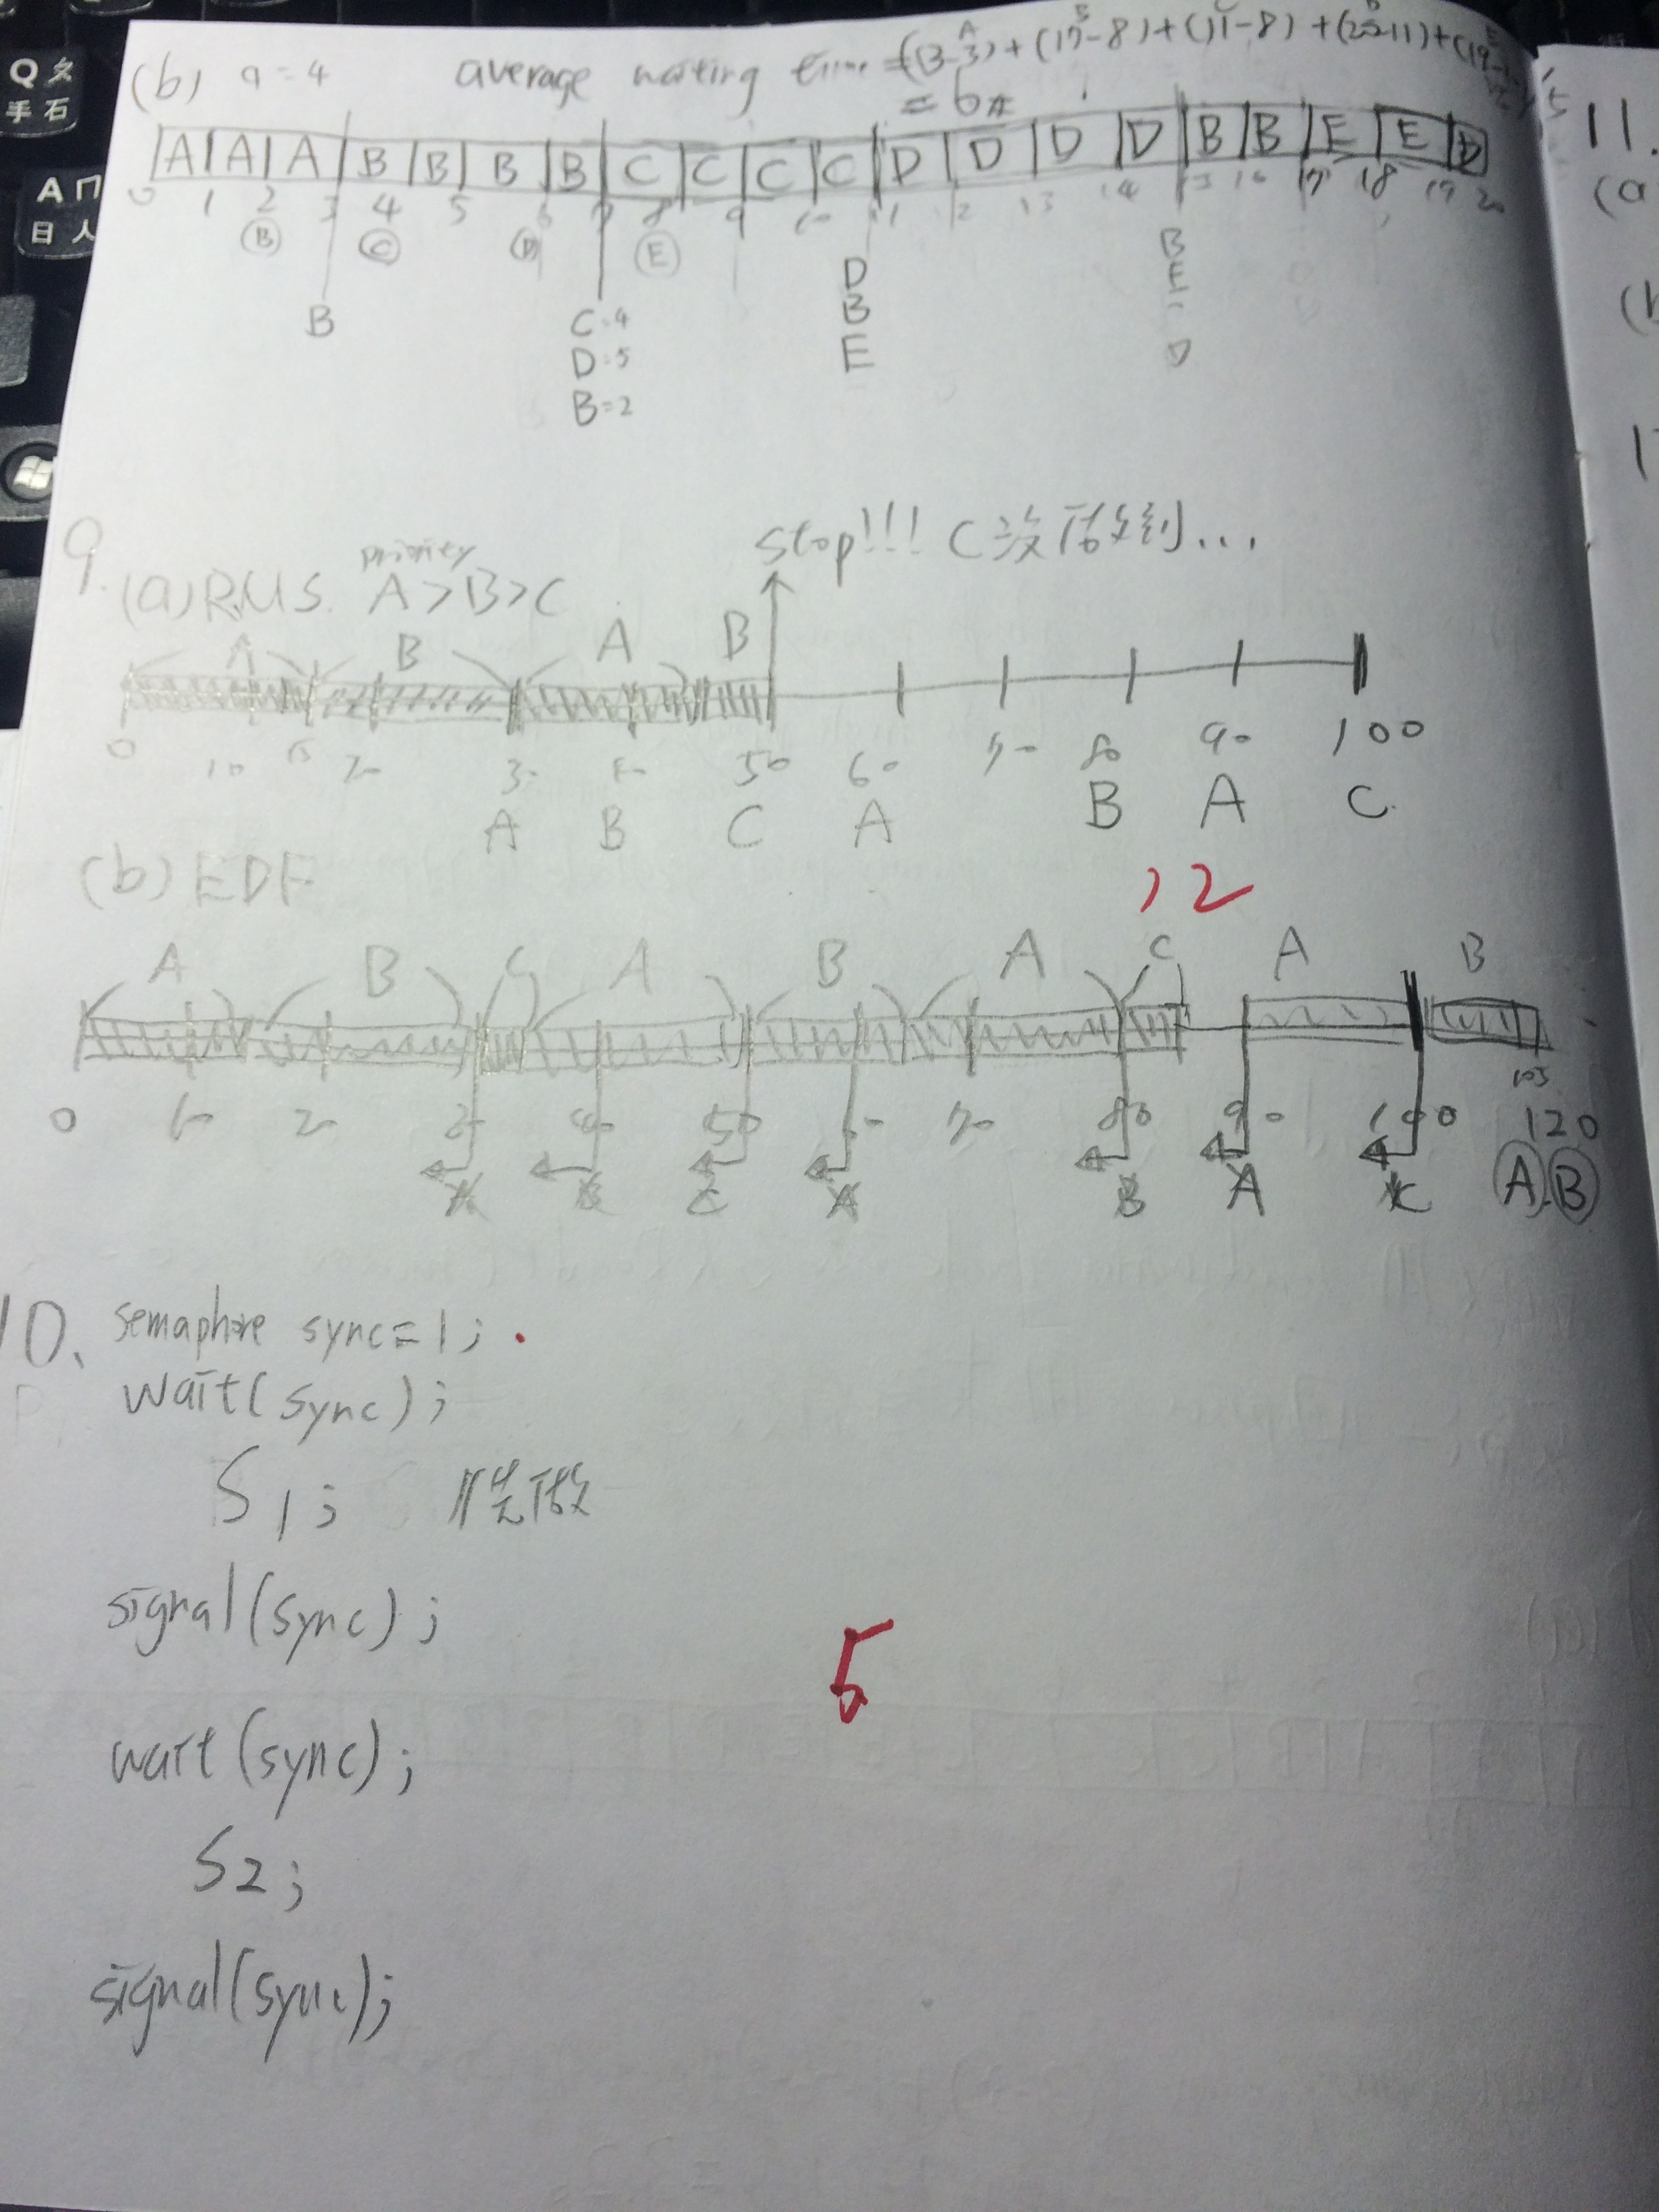 Q ㄆ
手 石
A ㄇ
日 人
(b) q=4 average waiting time =
= 6#
A A A B B B B C C C C D D D D B B E E D
0 1 2 3 4 5 6 7 8 9 10 11 12 13 14 15 16 17 18 19 20
B C D E
B
C=4
D=5
B=2
D
B
E
B
E
D
11.
(a
(b
9. (a) RMS. priority A>B>C
stop!!! C沒做到...
A B A B
0 10 15 20 30 40 50 60 70 80 90 100
A B C A B A C
(b) EDF
12
A B C A B A C A B
0 10 20 30 40 50 60 70 80 90 100 105 120
A B C A B A C A B
10. semaphore sync=1;
wait(sync);
S1; //先做
signal(sync);
5
wait(sync);
S2;
signal(sync);